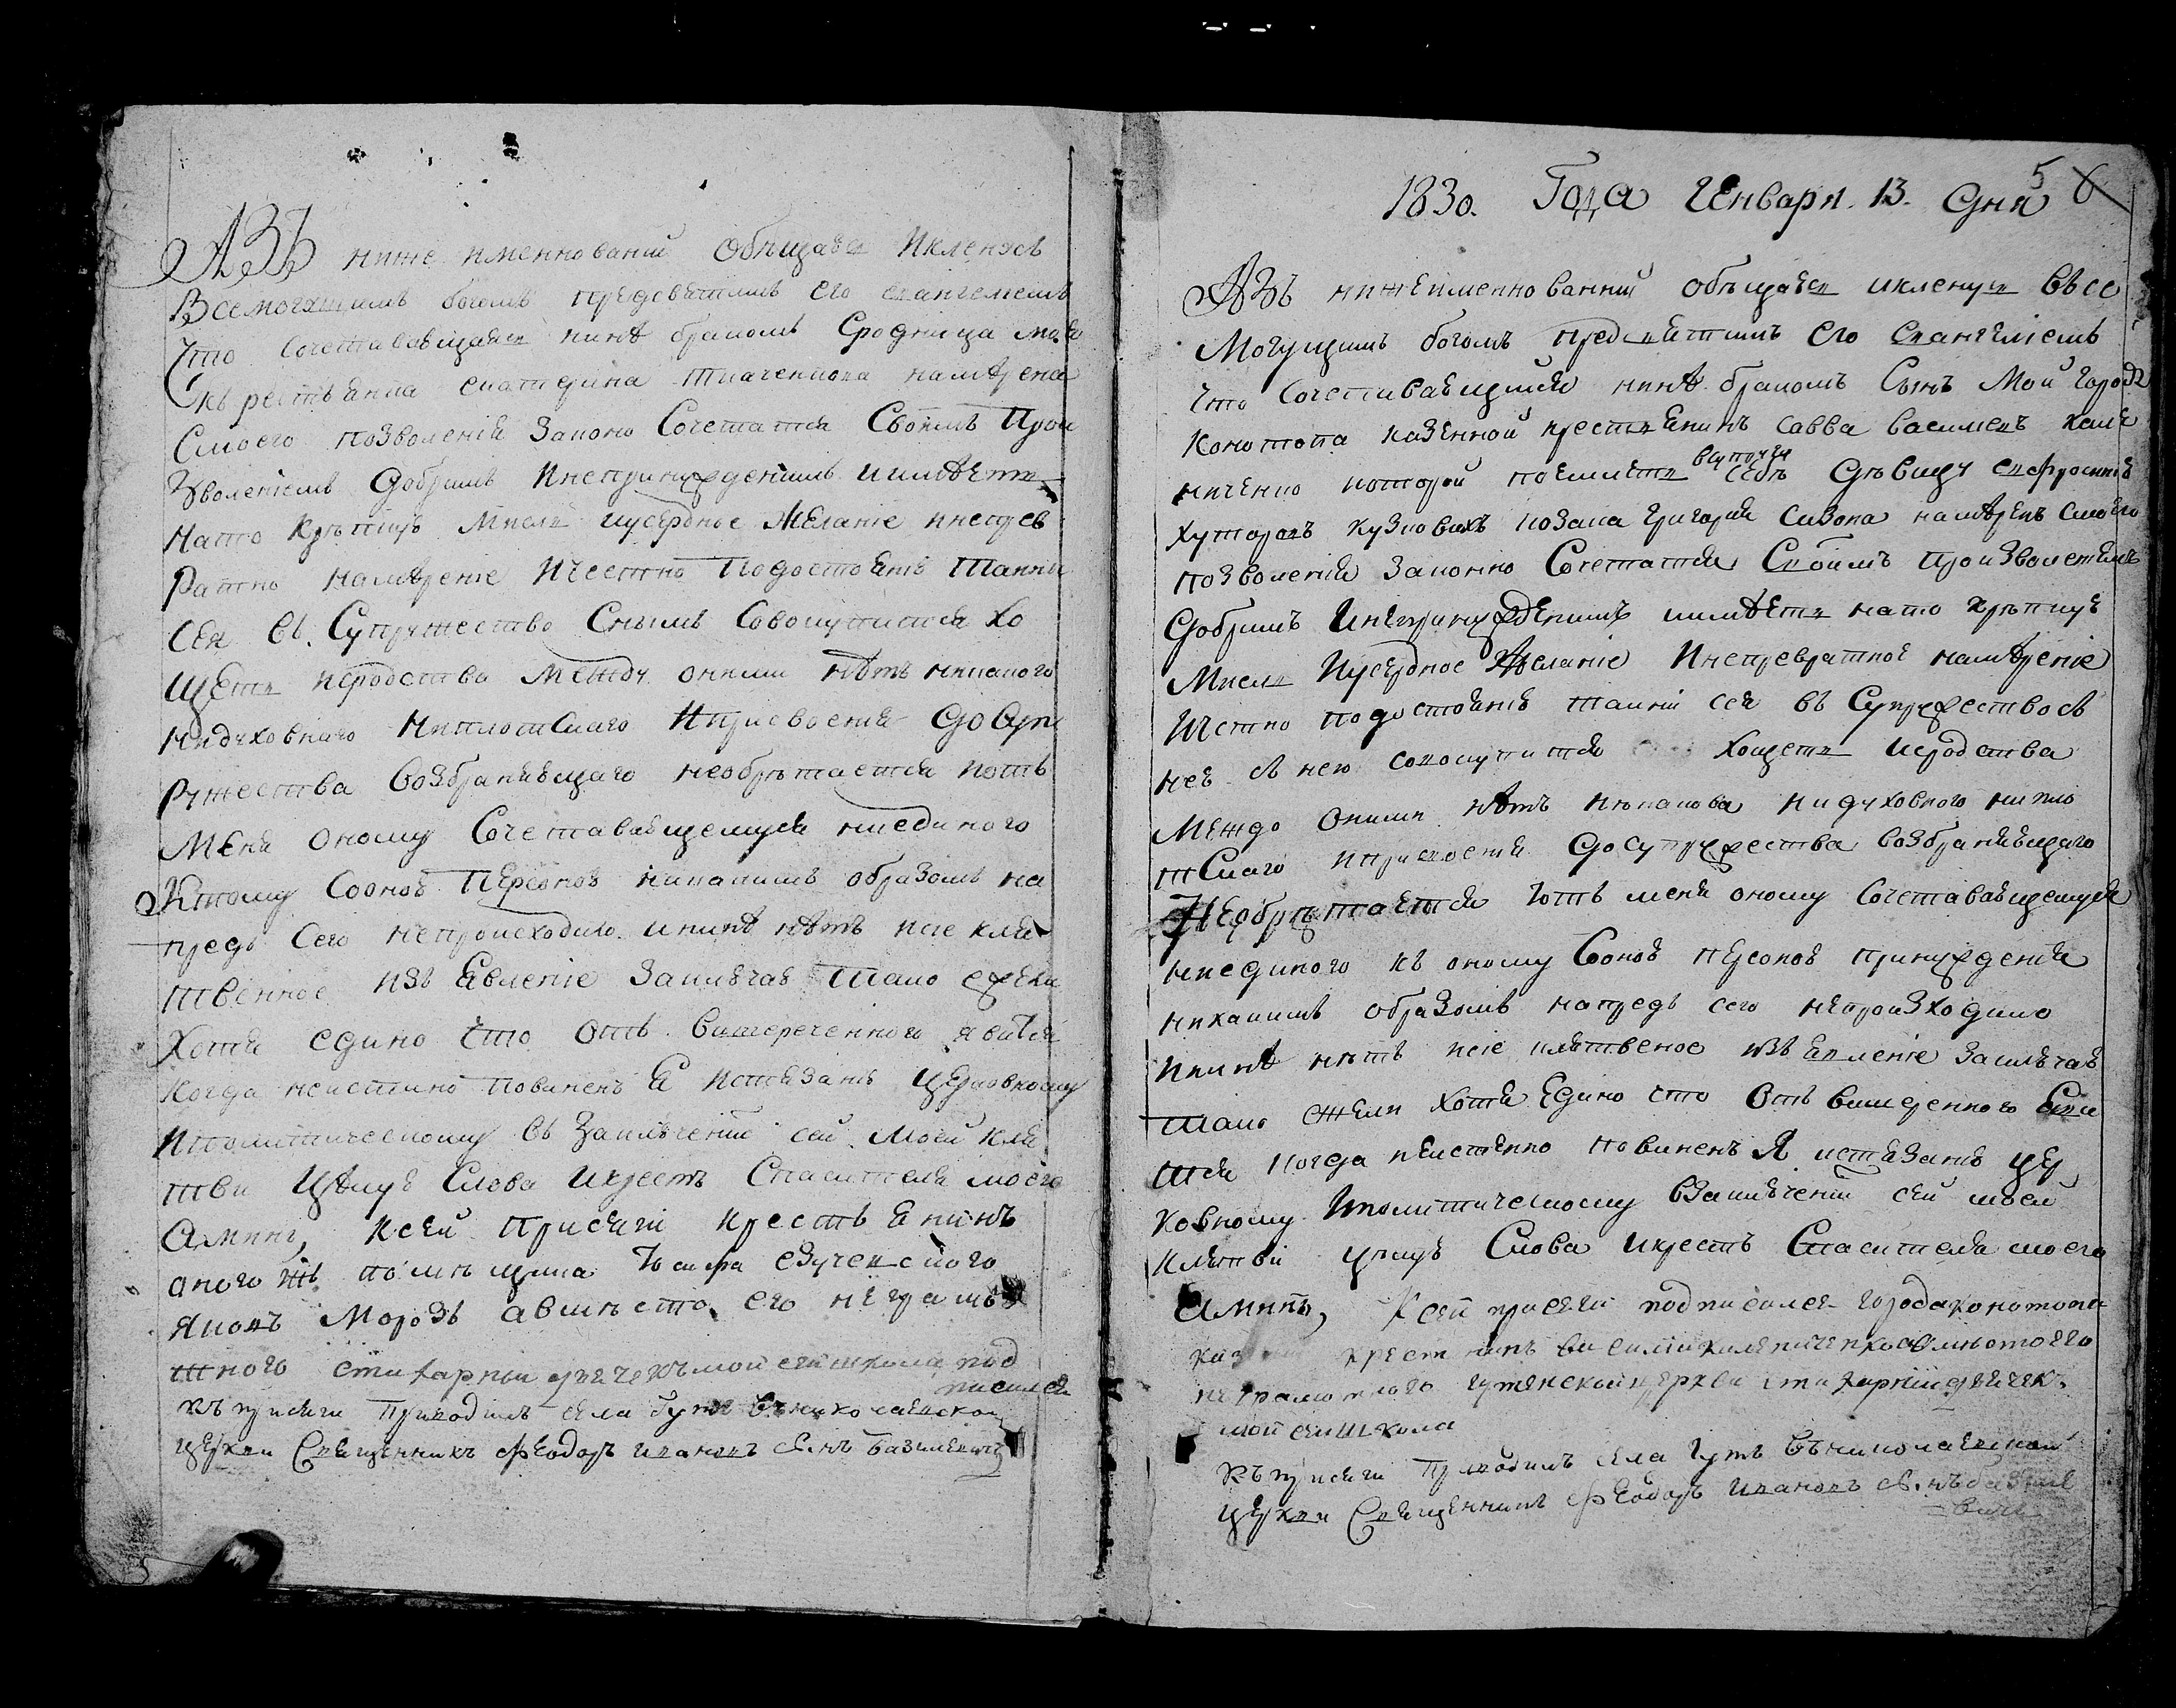 АЗЪ ниже именнований обѣщаюся Икленусь
Всемогущимъ богомъ предсвятимъ его евангелиемъ
Что Сочетаваящаяся нинѣ бракомъ Сродница моя
крестьянка екатерина Ткаченкова намѣрена
Смоего позволенія Законо Сочетатся Своимъ Прои
Зволеніемъ Добримъ Инепринужденнимъ иимѣетъ
Нато Крѣпкую Мисль иусердное Желаніе инепрев
Ратно Намѣреніе Ичестно Подостоянію Таини
Сея въ Супружество Снымъ Совокупится Хо
Щетъ иродства Между оними нѣтъ никакого
Нидуховнаго Ниплотскаго Иприсвоения Досуп
Ружества Возбраняющаго необрѣтается иотъ
Меня оному Сочетаваящемуся ниединого
Ктому Соонов Персонов никакимъ образомъ на
предь Сего непроисходило ининѣ нѣтъ исие кля
твенное изъявление Заключаю Тако ежели
Хотя едино Что Отъ вишереченного явится
Когда неистинно повиненъ Я истязанію Церковному
Иполитическому въ Заключеніе сей Моей кля
тви Цѣлую Слова Икрестъ Спасителя моего
Аминь, Ксей Присягі крестьянинъ
Морозъ авмѣсто его неграмо
тного стихарний дячекъ моисей школа под
писался
къ присяги Приводилъ села Гутъ Св: николаевской
церкви Священникъ Феодоръ Ивановъ с̃нъ базилевичъ
1830. Года Генваря. 13. Дня 5 6
АЗъ нижеименнованний обѣщаюся икленуся Всѣ
Могущимъ богомъ Предсвятимъ его евангелиемъ
что Сочетаваящийся нинѣ бракомъ Сынъ Мой города
Конотопа казенной крестьянинъ савва васильевъ кале
ниченко которой поемлетъ
всупруги
себѣ Дѣвицу ефросинию
хуторовъ кузковихъ козака Григория Сизона намѣренъ смоего
позволения Законно Сочетатся Своимъ Произволениемъ
Добримъ Инепринужденнимъ иимѣетъ нато крѣпкую
Мисль Иусердное Желаніе Инепревратное намѣреніе
Ичестно подостоянію таини сея въ Супружество съ
нею съ нею совокупится хощетъ иродства
Между оними нѣтъ нѣкакова нидуховного нипло
тскаго иприсвоения Досупружества возбраняющаго
Необрѣтается иотъ меня оному Сочетаваящемуся
ниединого къ оному Соонов персонов принуждения
никакимъ образомъ напредь сего непроизходило
Ининѣ нѣтъ исие клятвеное изъявленіе заключаю
тако ежели хотя Едино что Отъ вишереченного Яви
тся когда неистенно повиненъ Я истязанію цер
ковному Иполитическому Взаключеніе сей моей
клятви цѣлую Слова икрестъ Спасителя моего
Аминь, Ксей присяги подписался города конотопа
василий каленіченко авмѣсто его
неграмотного гутянской церкви стихарний дячекъ
моисей школа
Къ присяги Приводилъ села Гутъ Св: николаевской
церкви Священникъ Феодоръ Ивановъ с̃нъ базиле
вичъ